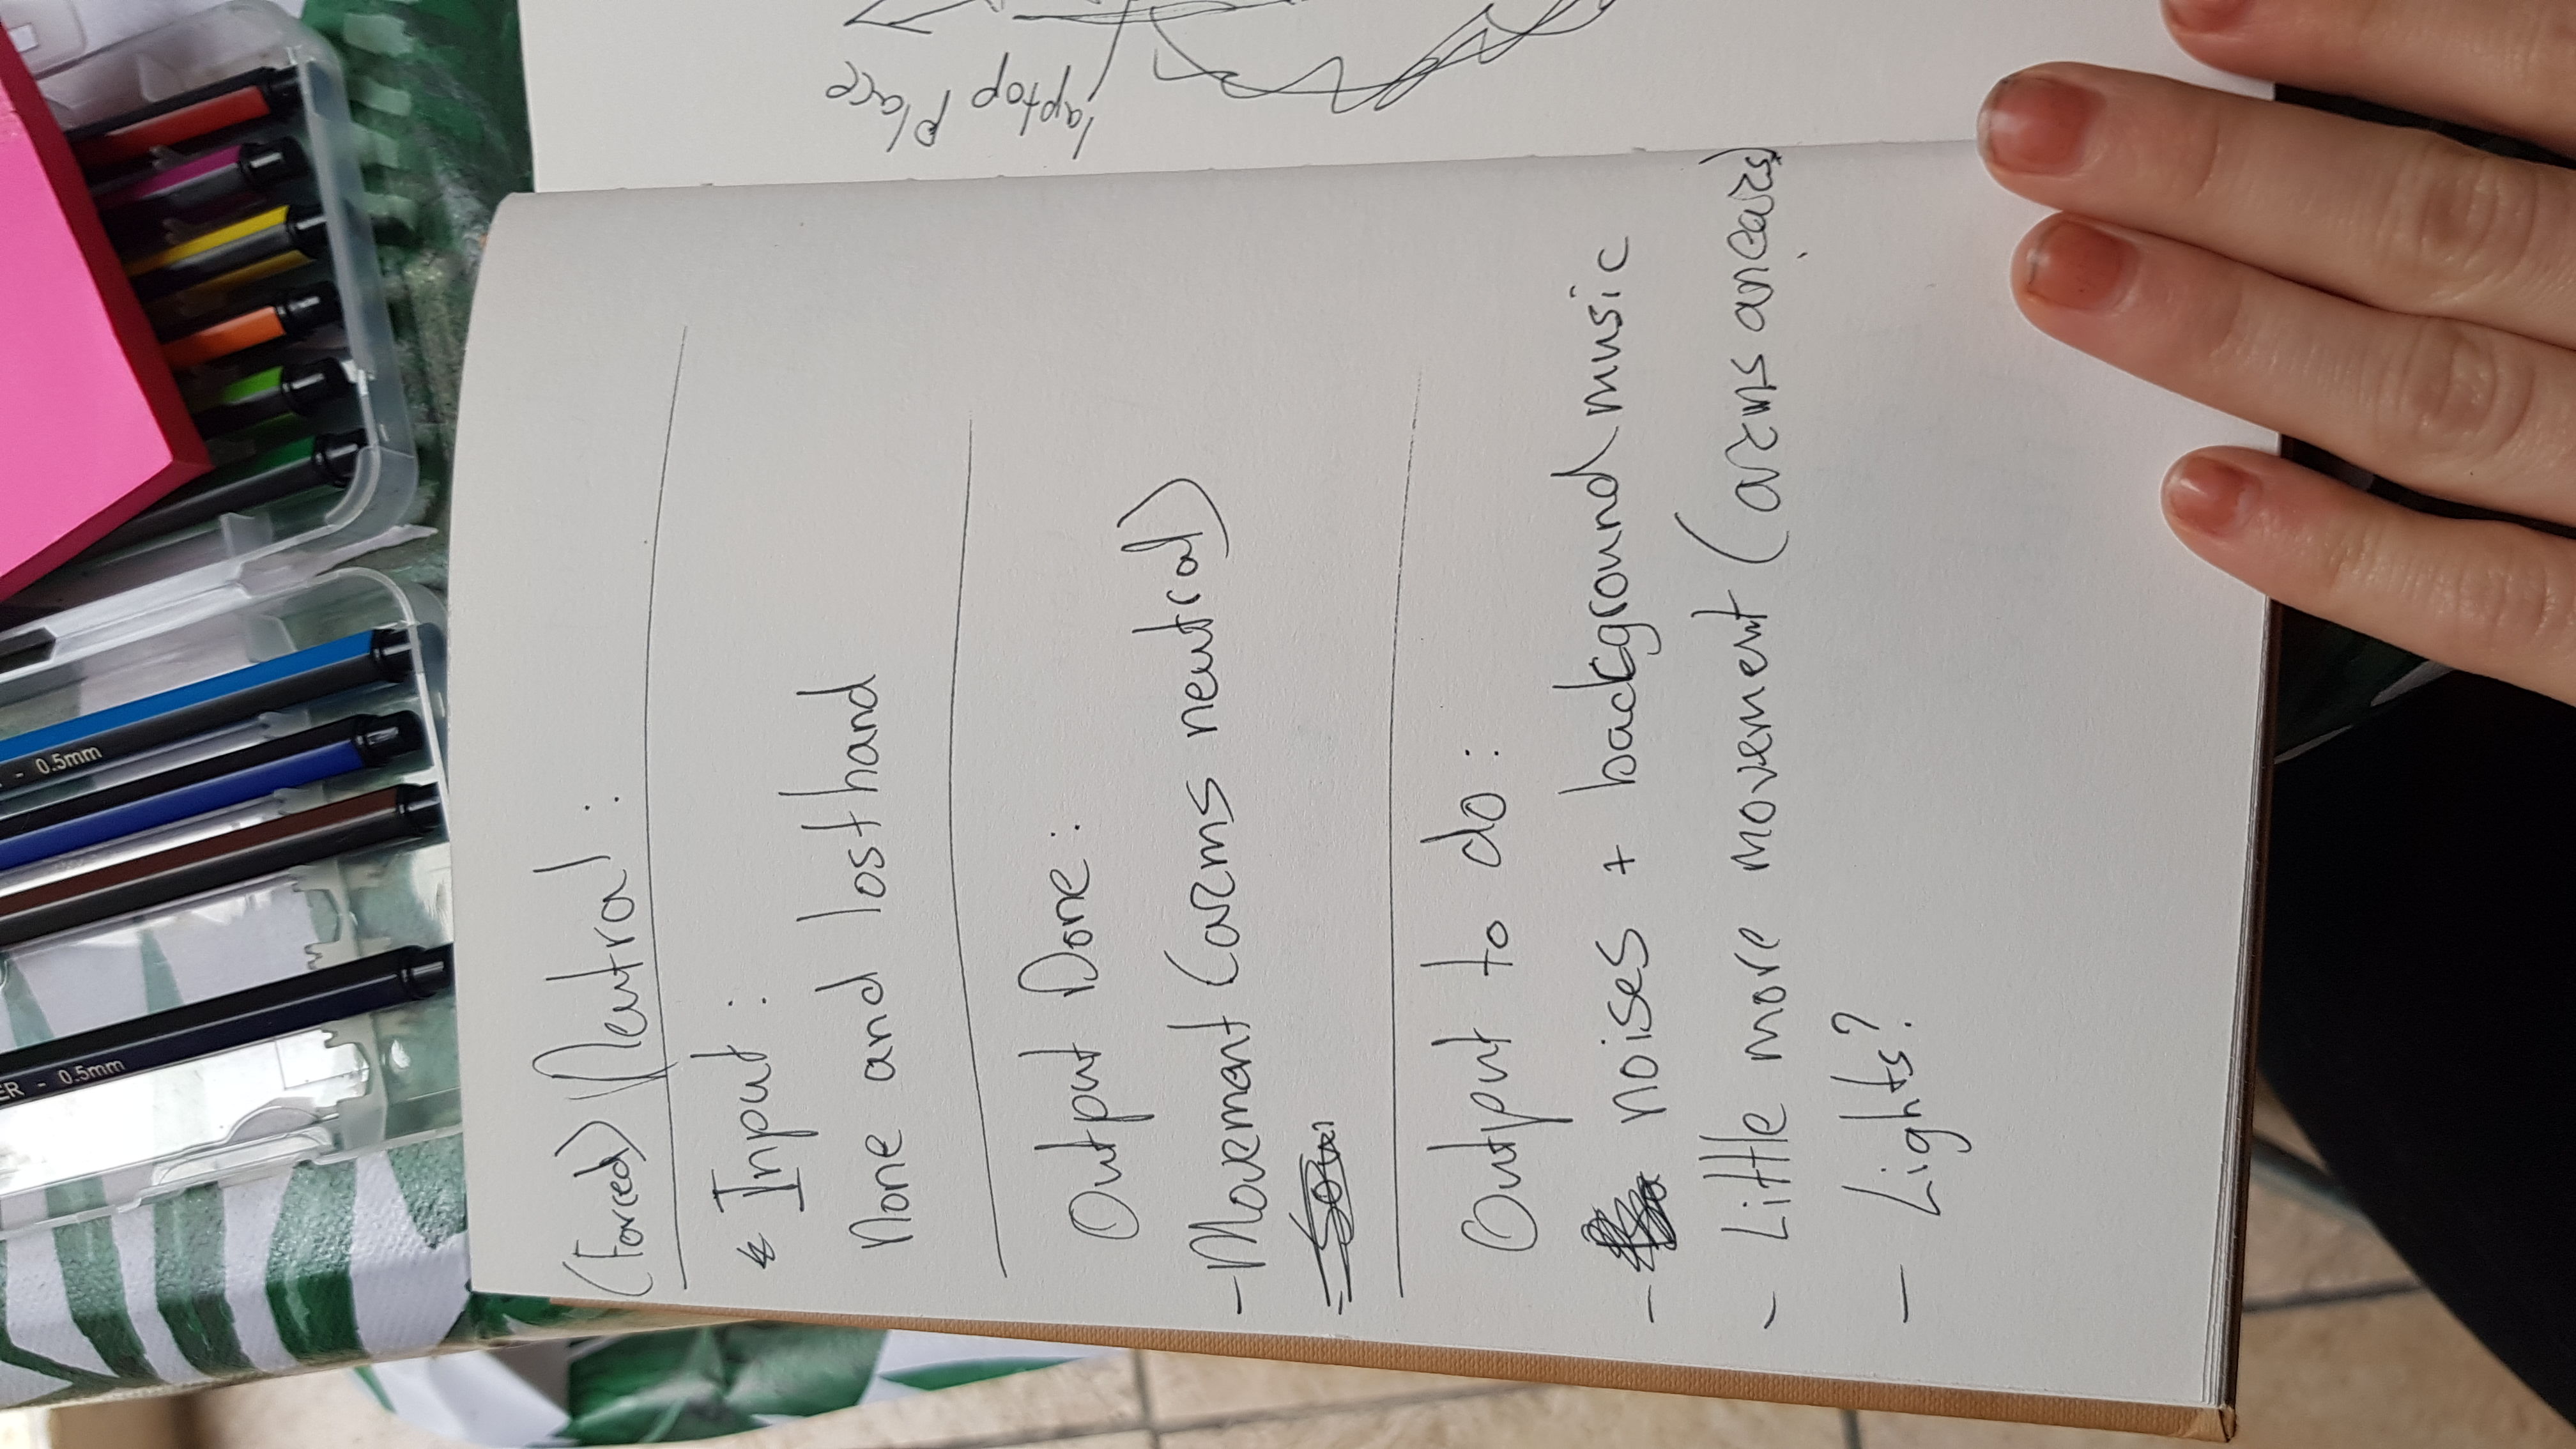 ER - 0.5mm
- 0.5mm
(Forced) Neutral :
Input :
None and losthand
Output Done :
- Movement (arms neutral)
Output to do :
- noises + background music
- Little more movement (arms an ears)
- Lights?
laptop place